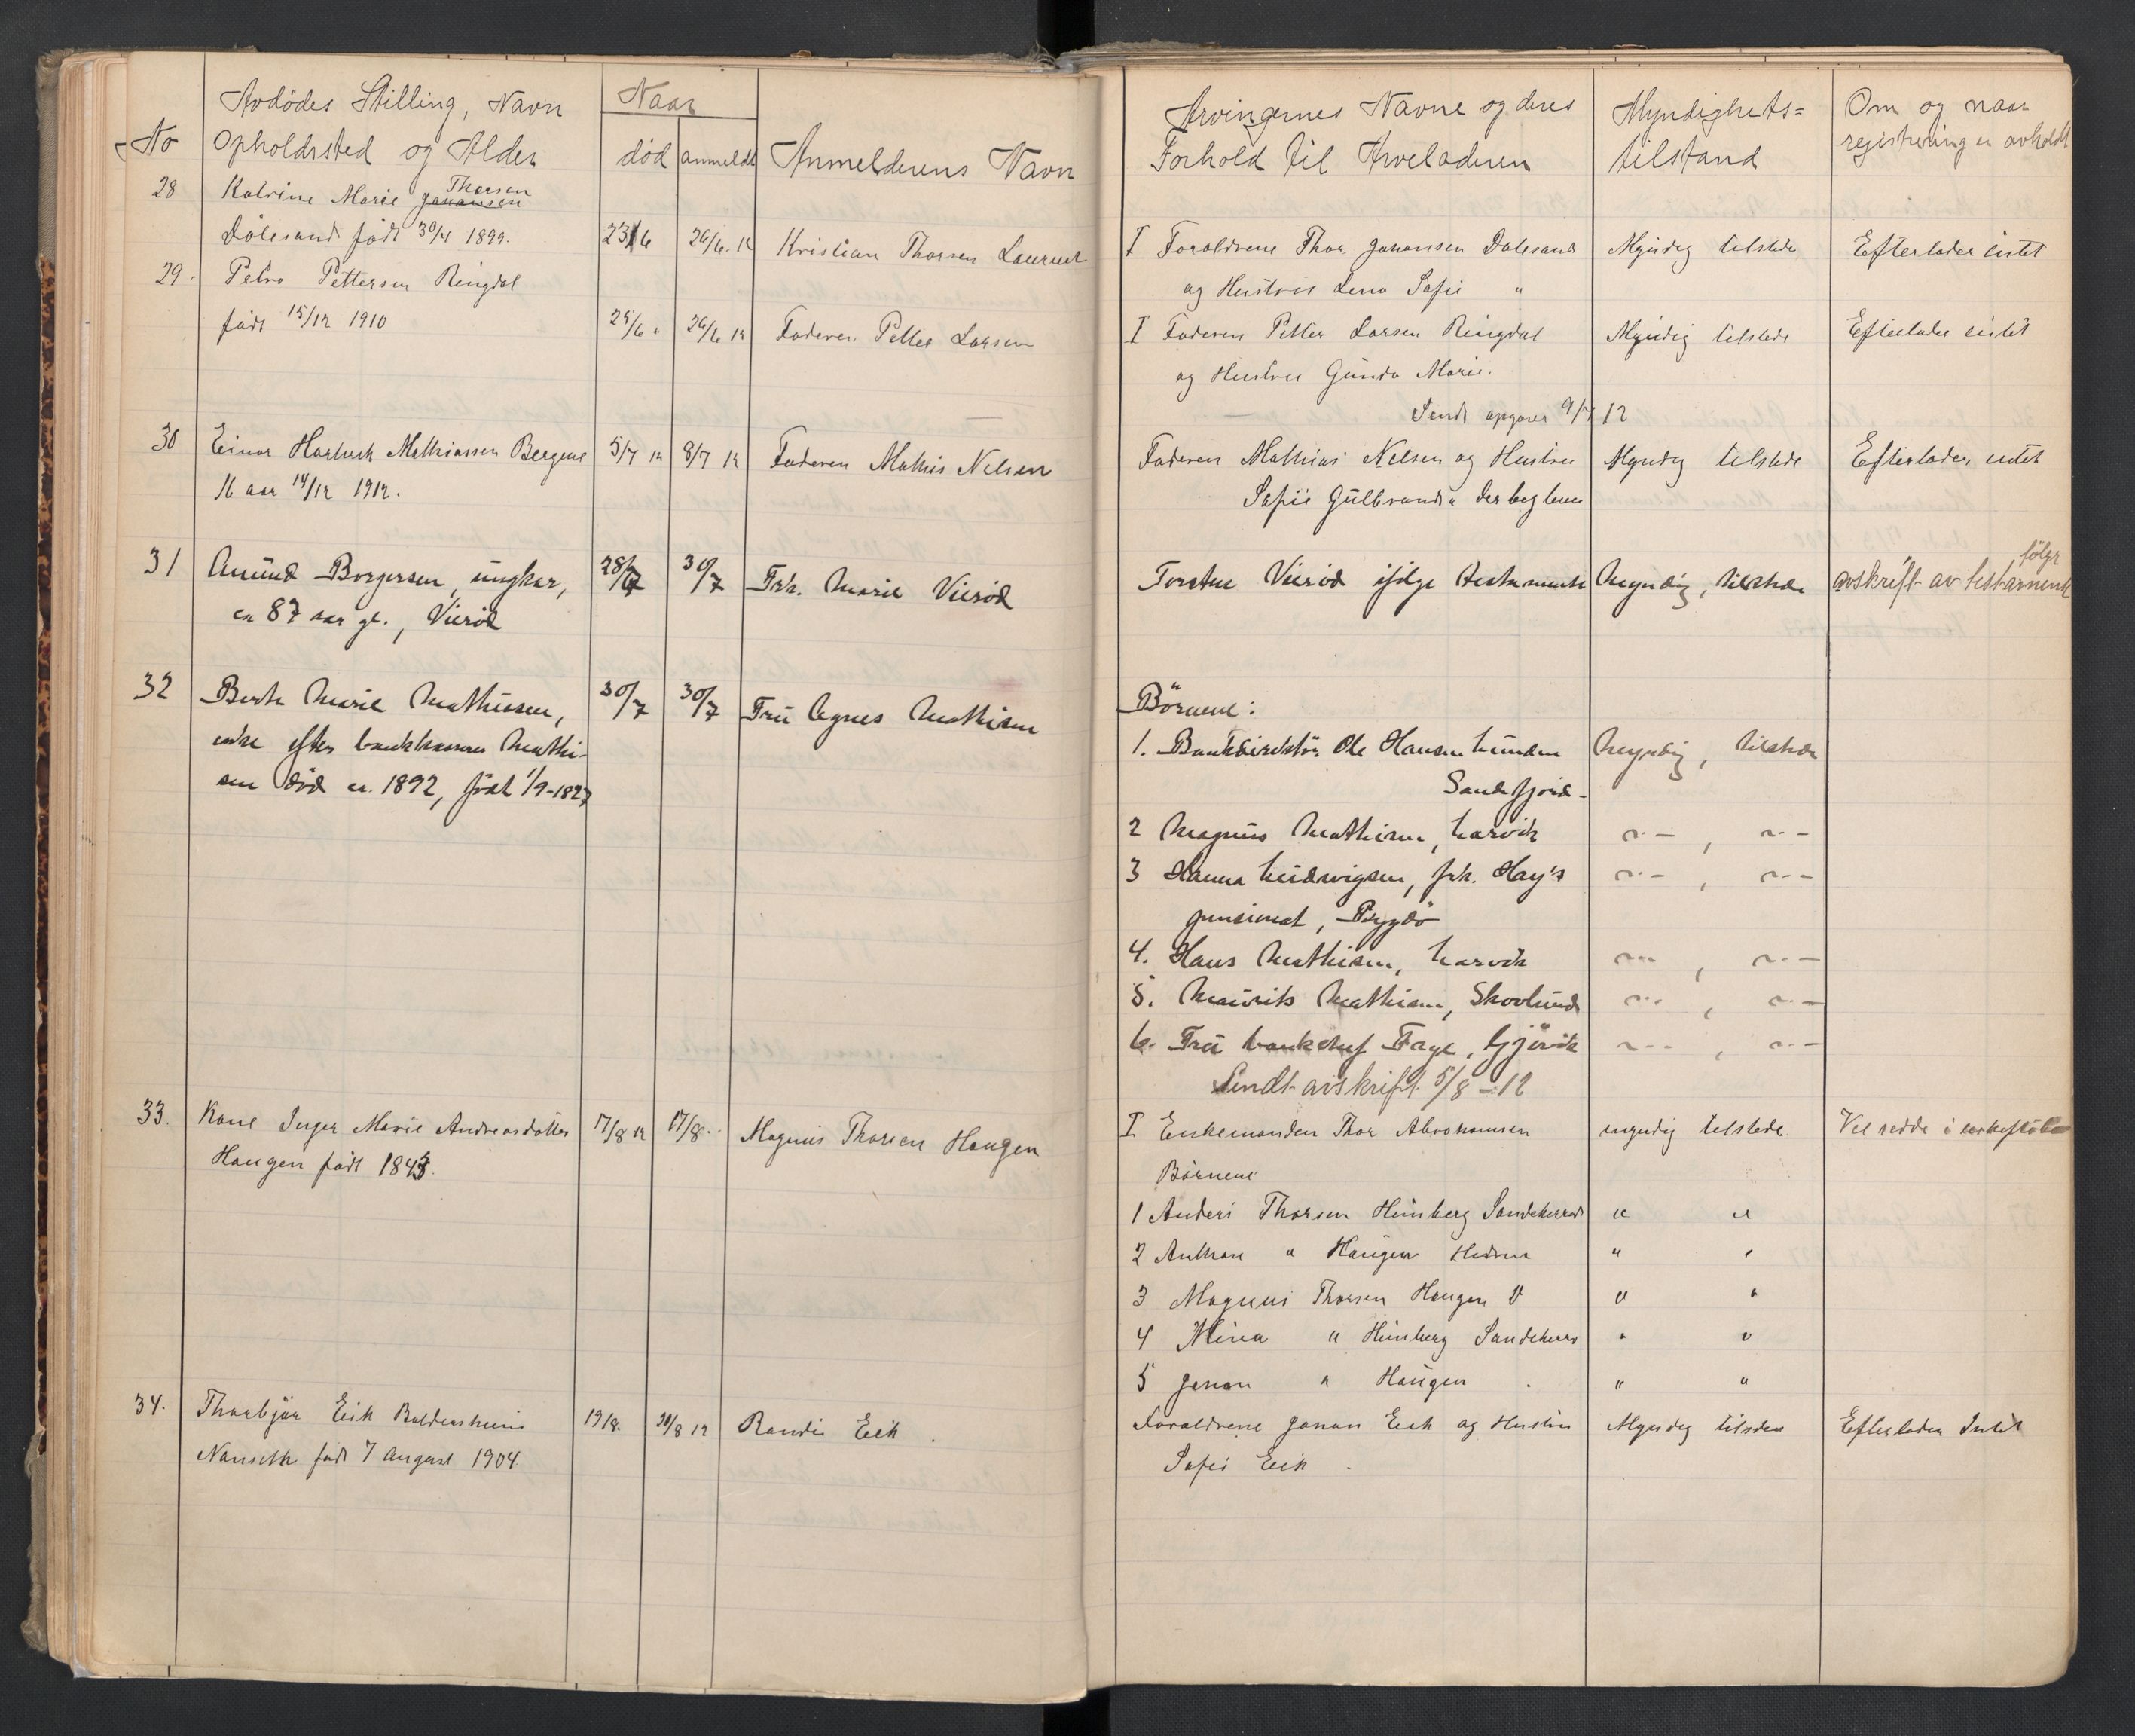 No
Avdødes Stilling, Navn
Opholdssted og Alder
Naar
død
anmeldt
Anmelderens Navn
28
Katrine Marie Johansen Thorsen
Dølesand født 30/4 1899.
23/6
26/6. 12
Kristian Thorsen
29.
Petra Pettersen Ringdal
født 15/12 1910
25/6
26/6 12
Faderen Petter Larsen
30
Einar Mathiassen Bergene
16 aar 14/12 1912.
5/7 12
8/7 12
Faderen Mathis Nilsen
31
Amund Borgersen, ungkar,
ca 87 aar gl., Vierød
28/7
30/7
Frk. Marie Vierød
32
Berte Marie Mathisen,
enke efter bankkasserer Mathi-
sen død ca. 1892, født 1/9-1827
30/7
30/7
Fru Agnes Mathisen
33.
Kone Inger Marie Andreasdatter
Haugen født 1843.
17/8 12
17/8
Magnus Thorsen Haugen
34.
Thorbjør Eik
Nanseth født 7 August 1904
19/8.
20/8 12
Randi Eik
Arvingernes Navne og deres
Forhold til Arveladeren
Myndighets=
tilstand
Om og naar
registrering er avholdt
I Forældrene Thor Johansen Dølesand
Myndig tilstede
Efterlader intet
og Hustru Lena Sofie "
I Faderen Petter Larsen Ringdal
Myndig tilstede
Efterlader intet
og Hustru Gunda Marie.
Sendt opgaver 9/7 12
Faderen Mathias Nilsen og Hustru
Myndig tilstede
Efterlader intet
Sofie Gulbrands
Torsten Vierød ifølge testamente
Myndig, tilstede
følger
avskrift av testamente
Børnene:
1. Bankdirektør Ole Hansen Lunden
Myndig, tilstede
Sandefjord-
2 Magnus Mathisen, Larvik
" — , " —
3 Hanna Ludvigsen, frk. Hay's
" — , " —
pensionat, Bygdö
4. Hans Mathisen, Larvik
" — , " —
5. Maurits Mathisen, Skovlund
" — , " —
6. Fru banksjef Faye, Gjövik
" — , " —
Sendt avskrift 5/8 - 12
I Enkemanden Thor Abrahamsen
myndig tilstede.
Børnene
1 Anders Thorsen Himberg Sandeherred
" "
2 Anthon " Haugen Hedrum
" "
3 Magnus Thorsen Haugen "
" "
4 Mina " Himberg Sandeherred
" "
5 Johan " Haugen
" "
Forældrene Johan Eik og Hustru
Myndig tilstede
Efterlader Intet
Sofie Eik